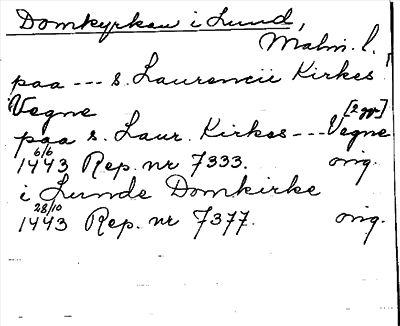 Domkyrkan i Lund,
Malm. l.
paa --- s. Laurencii Kirkes
Vegne [2 gr.]
paa s. Laur. Kirkes --- Vegne
6/6
1443 Rep. nr 7333. orig.
i Lunde Domkirke
28/10
1443 Rep. nr 7377. orig.